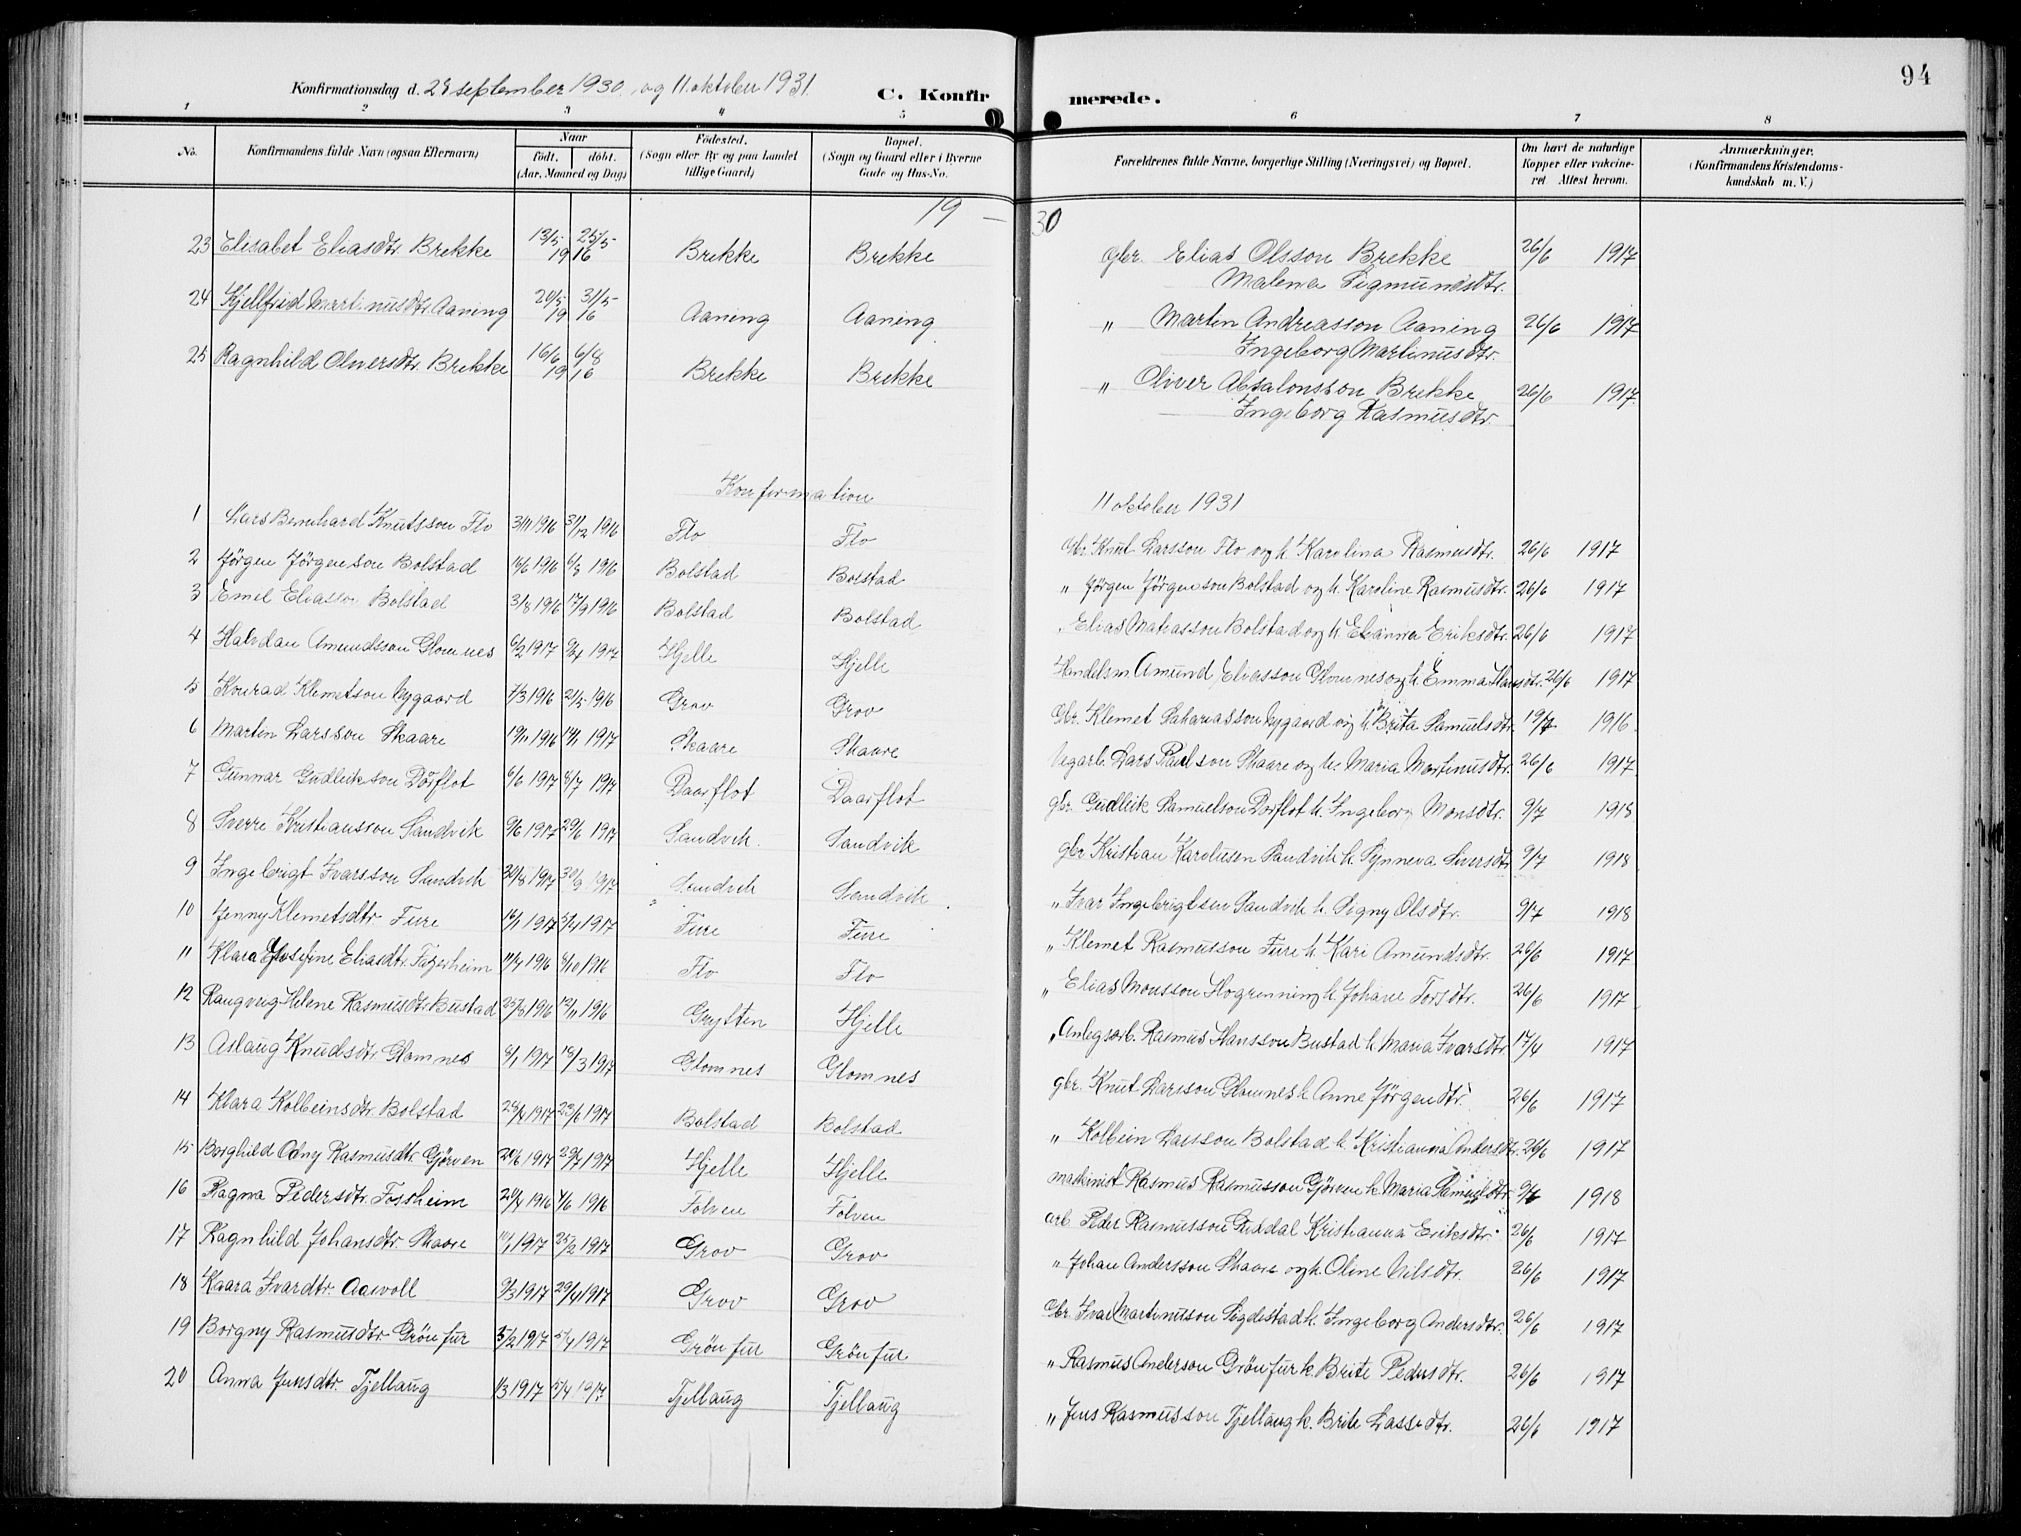 94
Konfirmationsdag d. 28 september 1930 og 11. oktober 1931.
C. Konfirmerede.
1 2 3 4 5 6 7 8
No. Konfirmandens fulde Navn (ogsaa Efternavn) Naar födt. döbt. (Aar, Maaned og Dag) Födested. (Sogn eller By og paa Landet tillige Gaard) Bopæl. (Sogn og Gaard eller i Byerne Gade og Hus-No. Forældrenes fulde Navne, borgerlige Stilling (Næringsvei) og Bopæl. Om havt de naturlige Kopper eller vakcineret. Attest herom. Anmærkninger. (Konfirmandens Kristendomskundskab m. V.)
19 - 30
23 Elisabet Eliasdtr. Brekke 13/5 25/5 1916 Brekke Brekke gbr. Elias Olsson Brekke 26/6 1917
Malena Sigmundsdtr.
24 Kjellfrid Martinusdtr. Aaning 20/5 31/5 1916 Aaning Aaning " Marten Andreasson Aaning 26/6 1917
Ingeborg Martinusdtr.
25 Ragnhild Oliversdtr. Brekke 16/6 6/8 1916 Brekke Brekke " Oliver Absalonsson Brekke 26/6 1917.
Ingeborg Rasmusdtr.
Konfirmation 11 oktober 1931
1 Lars Bernhard Knutsson Flo 3/11 1916 31/12 1916 Flo Flo Gbr. Knut Larsson Flo og h. Karolina Rasmusdtr. 26/6 1917
2 Jörgen Jörgenson Bolstad 16/6 1916 6/8 1916 Bolstad Bolstad " Jörgen Jörgenson Bolstad og h. Karoline Rasmusdtr. 26/6 1917
3 Emel Eliasson Bolstad 3/8 1916 17/9 1916 Bolstad Bolstad " Elias Matiasson Bolstad og h. Elianna Eriksdtr. 26/6 1917
4 Halvdan Amundsson Glomnes 6/2 1917 9/4 1917 Hjelle Hjelle Handelsm. Amund Eliasson Glomnes og h. Emma Hansdtr. 26/6 1917
5 Konrad Klemetson Nygaard 7/3 1916 21/5 1916 Grov Grov Gbr. Klemet Sakariasson Nygaard og h. Brita Samuelsdtr. 19/7 1916.
6 Marten Larsson Skaare 19/11 1916 14/1 1917 Skaare Skaare Vegarb. Lars Paulson Skaare og h. Maria Martinusdtr. 26/6 1917.
7 Gunnar Gudleikson Dörflot 6/6 1917 8/7 1917 Daarflot Daarflot gbr. Gudleik Samuelson Dorflot h. Ingeborg Monsdtr. 9/7 1918
8 Sverre Kristiansson Sandvik 9/6 1917 29/6 1917 Sandvik. Sandvik gbr Kristian Karolusen Sandvik h. Synneva Siversdtr 9/7 1918
9 Ingebrigt Ivarsson Sandvik 30/8 1917 30/9 1917 Sandvik Sandvik " Ivar Ingebrigtsen Sandvik h. Signy Olsdtr. 9/7 1918
10 Jenny Klemetsdtr. Fure 16/1 1917 5/4 1917 Fure Fure " Klemet Rasmusson Fure h. Kari Amundsdtr. 26/6 1917
11 Klara Josefine Eliasdtr. Fagerheim 11/4 1916 8/10 1916 Flo Flo " Elias Monsson Hogrenning h. Johane Torsdtr. 26/6 1917
12 Raugveig Helene Rasmusdtr. Bustad 25/8 1916 12/11 1916 Grytten Hjelle " Anlegsarb. Rasmus Hansson Bustad h. Maria Ivarsdtr. 17/4 1917
13 Aslaug Knudsdtr. Glomnes 8/1 1917 18/3 1917 Glomnes Glomnes gbr. Knut Larsson Glomnes h. Anne Jörgensdtr. 26/6 1917
14 Klara Kolbeinsdtr. Bolstad 28/4 1917 23/6 1917 Bolstad Bolstad " Kolbein Larsson Bolstad h. Kristianna Andersdtr. 26/6 1917
15 Borghild Odny Rasmusdtr. Gjörven 20/6 1917 29/7 1917 Hjelle Hjelle maskinist Rasmus Rasmusson Gjörven h. Maria Samuelsdtr. 9/7 1918
16 Ragna Pedersdtr. Fossheim 20/4 1916 4/6 1916 Folven Folven arb. Peder Rasmusson Kristianna Eriksdtr. 26/6 1917
17 Ragnhild Johansdtr. Skaare 11/1 1917 25/2 1917 Grov Grov " Johan Andersson Skaare og h. Oline Nilsdtr. 26/6 1917
18 Kaara Ivardtr. Aavoll 9/3 1917 29/4 1917 Grov Grov Gbr. Ivar Martinusson Sigdestad h. Ingeborg Andersdtr. 26/6 1917
19 Borgny Rasmusdtr. Grönfur 5/2 1917 5/4 1917 Grönfur Grönfur " Rasmus Anderson Grönfur h. Brite Pedersdtr. 26/6 1917
20 Anna Jensdtr. Tjellaug 1/3 1917 5/4 1917 Tjellaug Tjellaug " Jens Rasmusson Tjellaug h. Brite Lassedtr. 26/6 1917